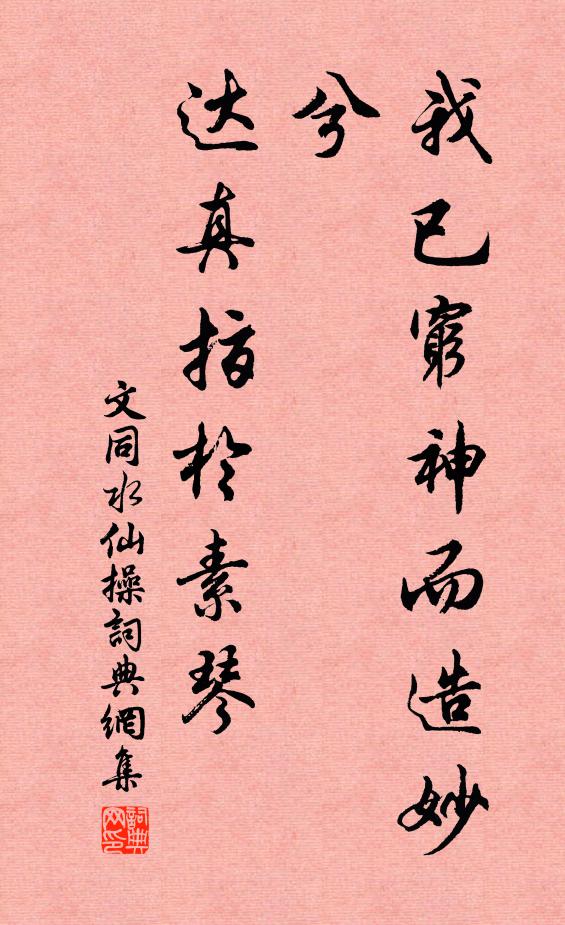 我已窮神而造妙
兮
达真指於素琴
文同水仙操詞典網集
詞典网印